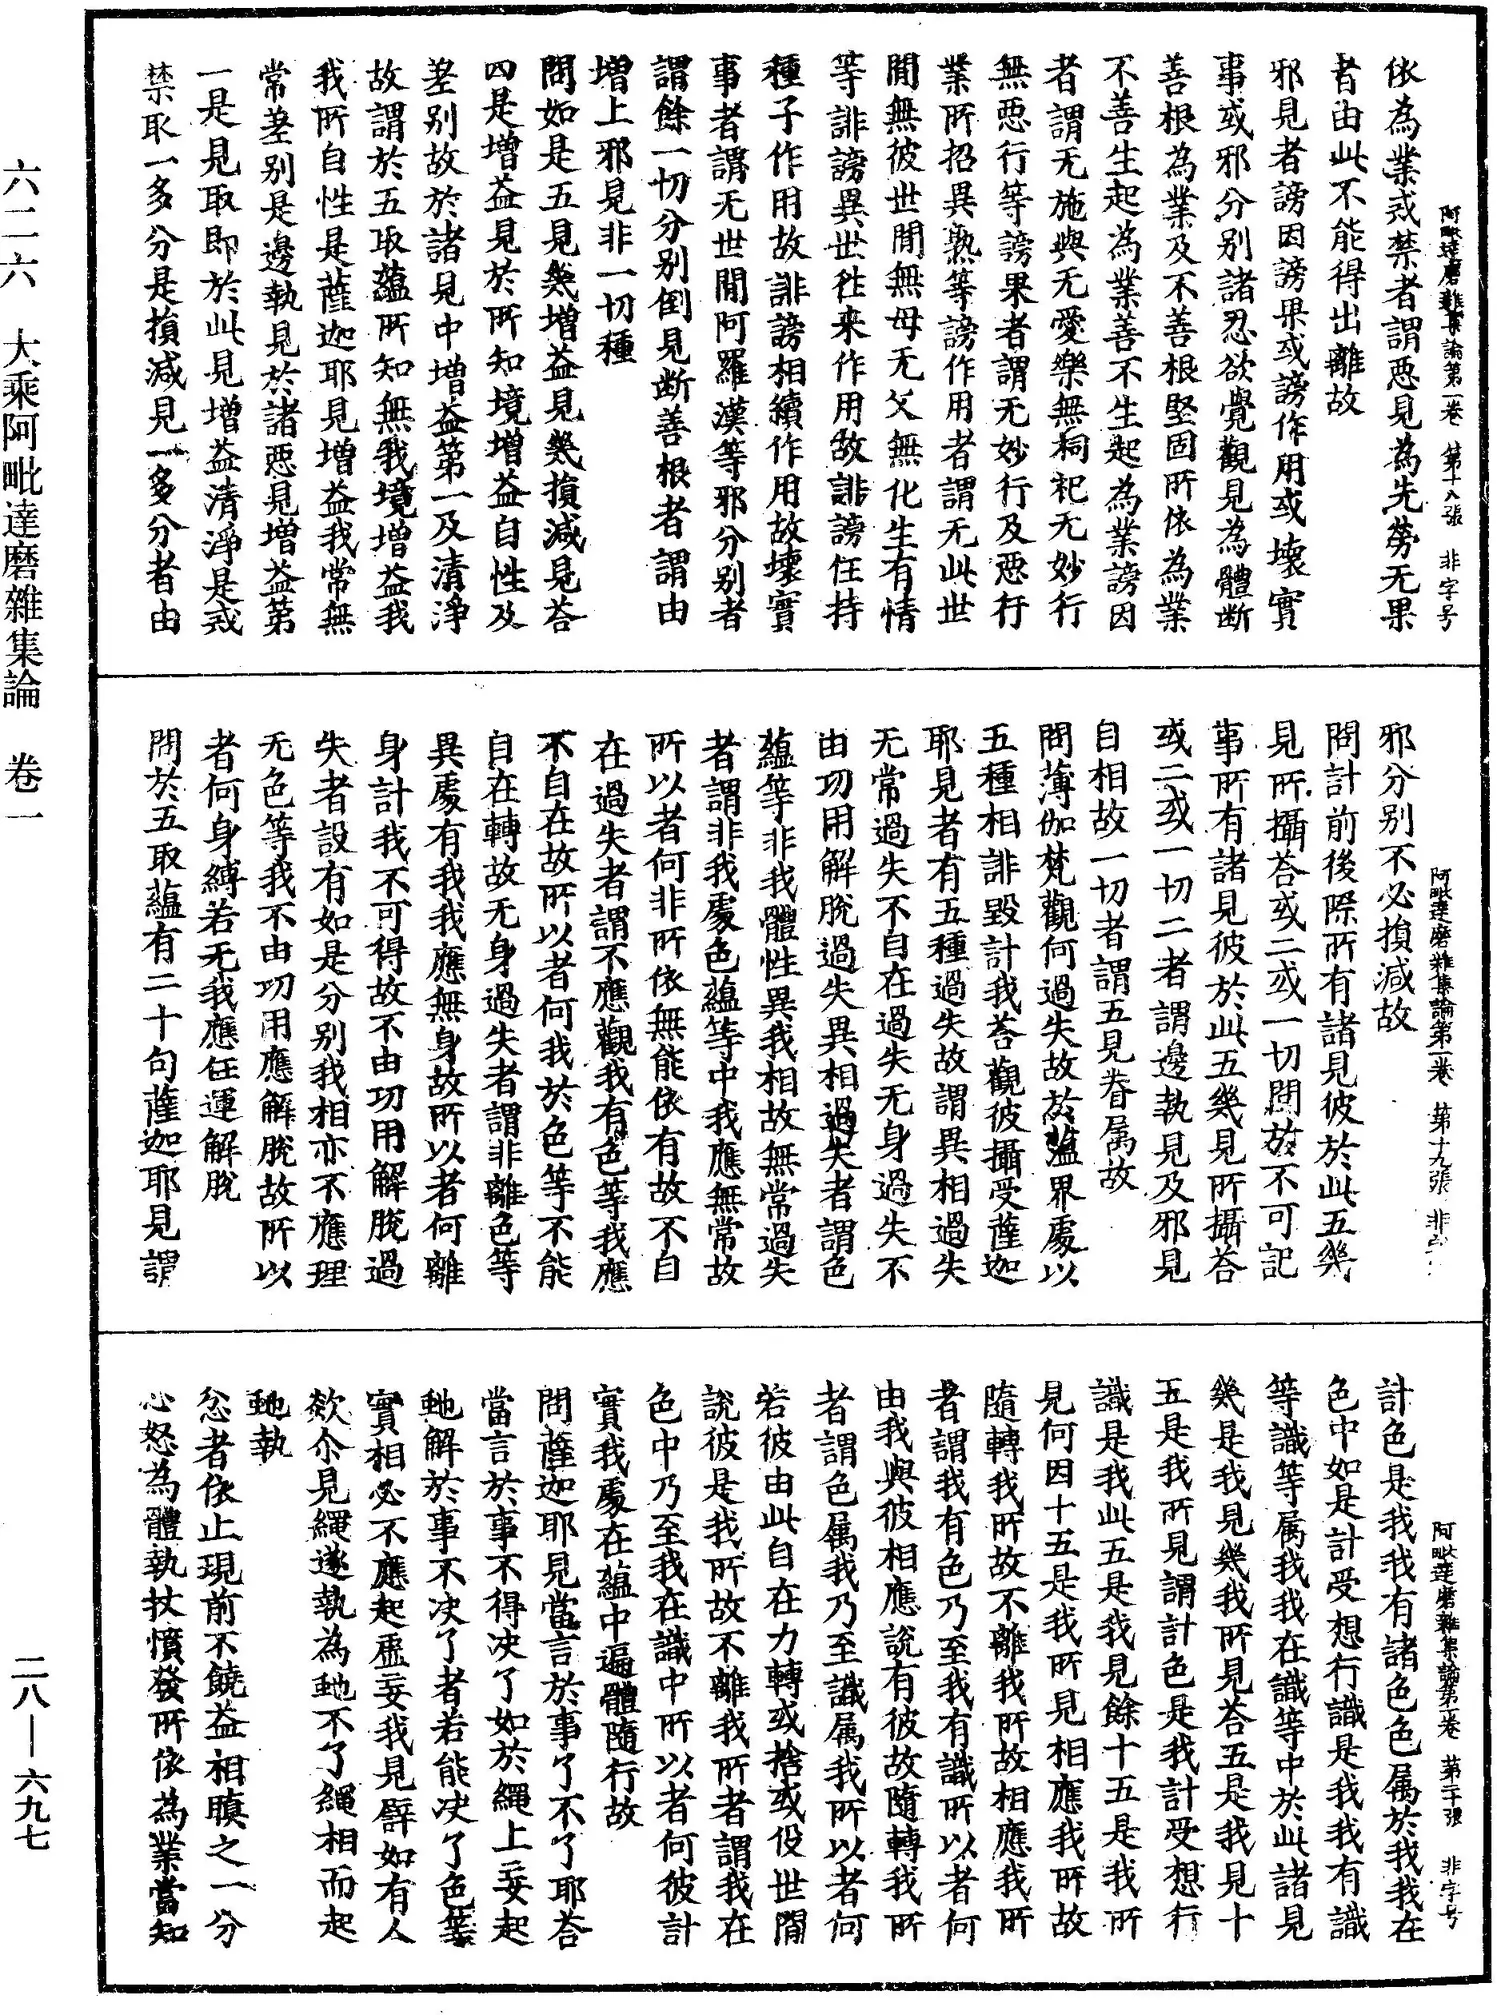 阿毗達磨雜集論第一卷 第十八張 非字号
依為業戒禁者謂惡見為先勞无果
者由此不能得出離故
邪見者謗因謗果或謗作用或壞實
事或邪分別諸忍欲覺觀見為體斷
善根為業及不善根堅固所依為業
不善生起為業善不生起為業謗因
者謂无施與无愛樂無祠祀无妙行
無惡行等謗果者謂无妙行及惡行
業所招異熟等謗作用者謂无此世
間無彼世間無母无父無化生有情
等誹謗異世往來作用故誹謗任持
種子作用故誹謗相續作用故壞實
事者謂无世間阿羅漢等邪分別者
謂餘一切分別倒見斷善根者謂由
增上邪見非一切種
問如是五見幾增益見幾損減見荅
四是增益見於所知境增益自性及
差別故於諸見中增益第一及清淨
故謂於五取蘊所知無我境增益我
我所自性是薩迦耶見增益我常無
常差別是邊執見於諸惡見增益第
一是見取即於此見增益清淨是戒
禁取一多分是損減見一多分者由
阿毗達磨雜集論第一卷 第十九張 非字
邪分別不必損減故
問計前後際所有諸見彼於此五幾
見所攝荅或二或一切問於不可記
事所有諸見彼於此五幾見所攝荅
或二或一切二者謂邊執見及邪見
自相故一切者謂五見眷屬故
問薄伽梵觀何過失故於蘊界處以
五種相誹毀計我荅觀彼攝受薩迦
耶見者有五種過失故謂異相過失
无常過失不自在過失无身過失不
由功用解脫過失異相過失者謂色
蘊等非我體性異我相故無常過失
者謂非我處色蘊等中我應無常故
所以者何非所依無能依有故不自
在過失者謂不應觀我有色等我應
不自在故所以者何我於色等不能
自在轉故无身過失者謂非離色等
異處有我我應無身故所以者何離
身計我不可得故不由功用解脫過
失者設有如是分別我相亦不應理
无色等我不由功用應解脫故所以
者何身縛若无我應任運解脫
問於五取蘊有二十句薩迦耶見謂
阿毗達磨雜集論第一卷 第二十張 非字号
計色是我我有諸色色属於我我在
色中如是計受想行識是我我有識
等識等属我我在識等中於此諸見
幾是我見幾我所見荅五是我見十
五是我所見謂計色是我計受想行
識是我此五是我見餘十五是我所
見何因十五是我所見相應我所故
隨轉我所故不離我所故相應我所
者謂我有色乃至我有識所以者何
由我與彼相應說有彼故隨轉我所
者謂色属我乃至識属我所以者何
若彼由此自在力轉或捨或役世間
說彼是我所故不離我所者謂我在
色中乃至我在識中所以者何彼計
實我處在蘊中遍體隨行故
問薩迦耶見當言於事了不了耶荅
當言於事不得決了如於繩上妄起
虵解於事不決了者若能決了色等
實相必不應起虛妄我見譬如有人
欻尒見繩遂執為虵不了繩相而起
虵執
忿者依止現前不饒益相瞋之一分
心怒為體執杖憤發所依為業當知
六二六 大乘阿毗達磨雜集論 卷一
二八—六九七